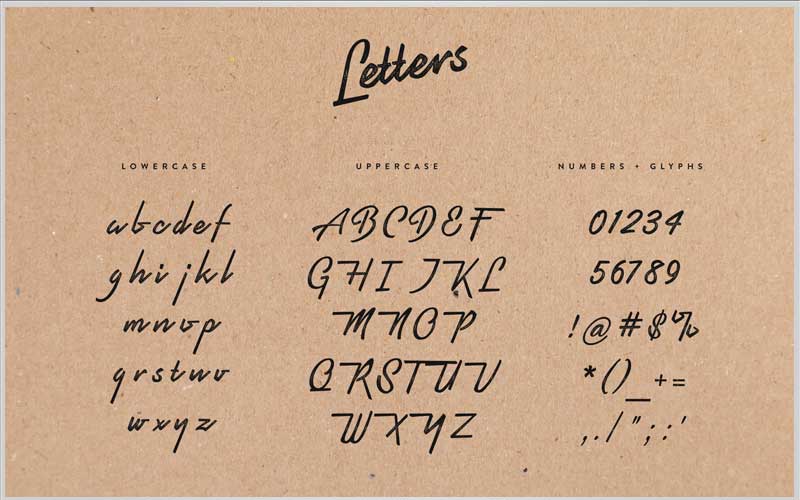 Letters
LOWERCASE
abcdef
ghijkl
mnop
qrstuv
wxyz
UPPERCASE
ABCDEF
GHIJKL
MNOP
QRSTUV
WXYZ
NUMBERS + GLYPHS
01234
56789
!@#$%
*()_+=
,./";:'